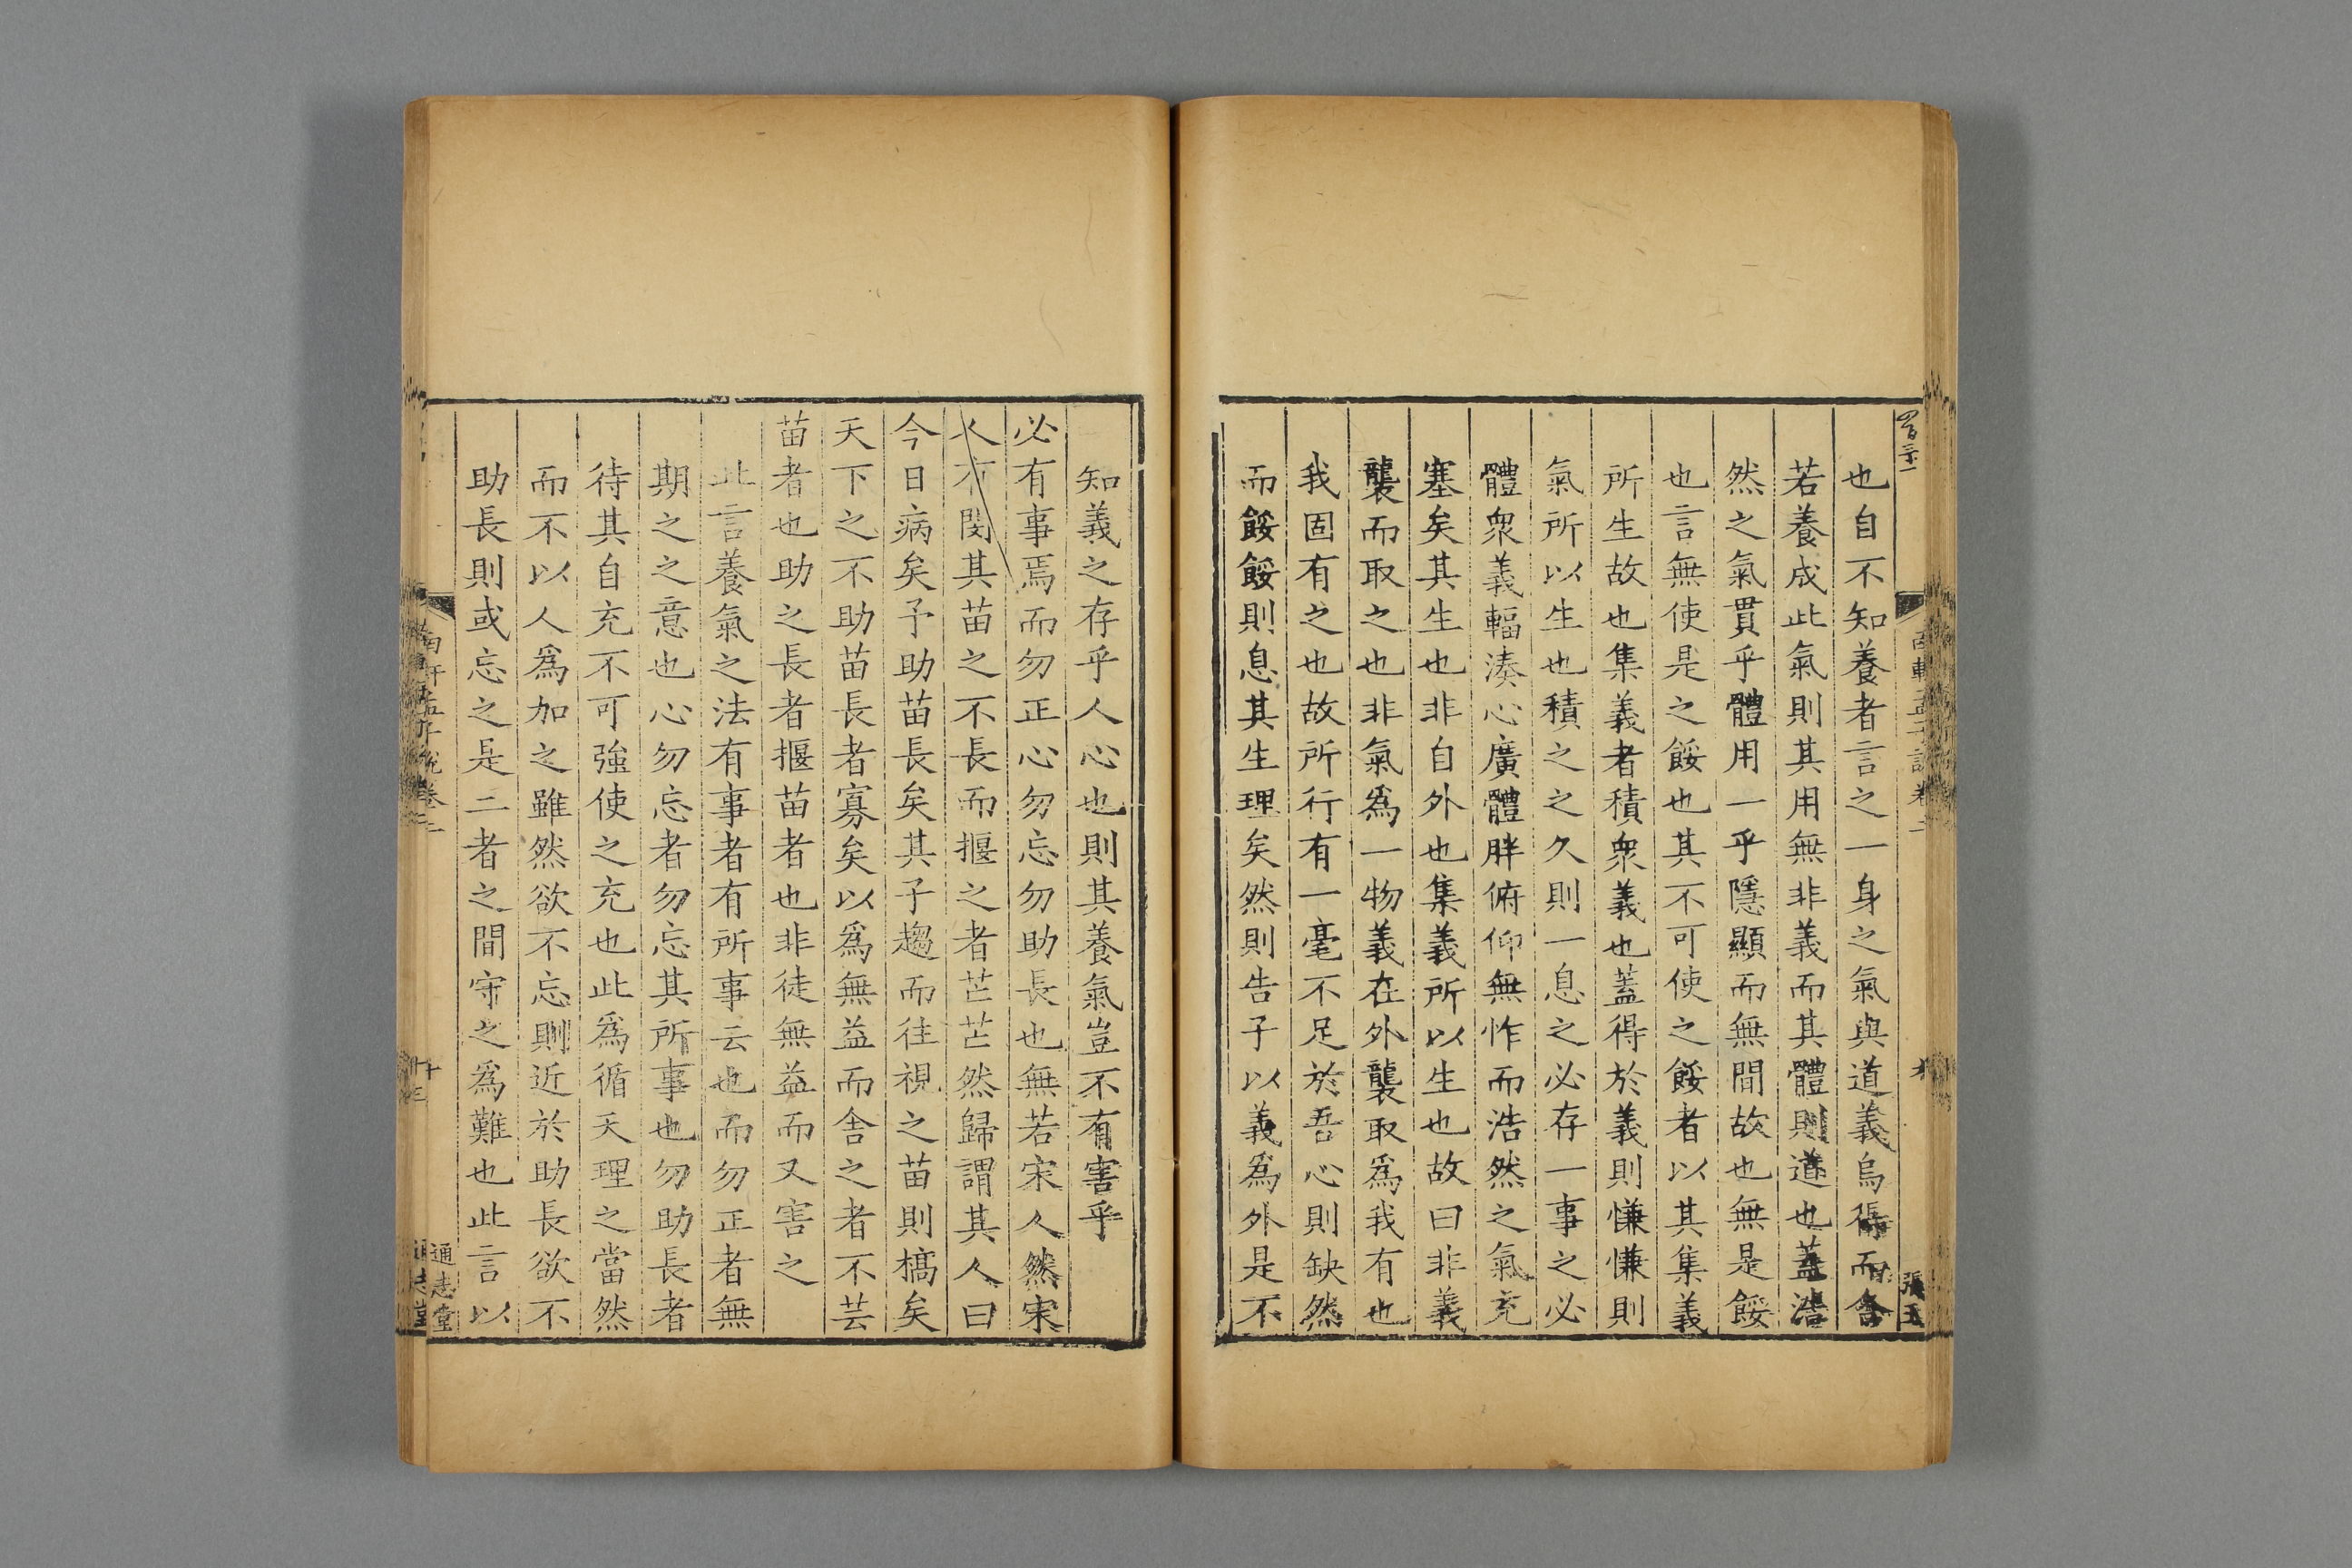 也自不知養者言之一身之氣與道義烏得而合
若養成此氣則其用無非義而其體則道也蓋浩
然之氣貫乎體用一乎隱顯而無間故也無是餒
也言無使是之餒也其不可使之餒者以其集義
所生故也集義者積衆義也蓋得於義則慊慊則
氣所以生也積之之久則一息之必存一事之必
體衆義輻湊心廣體胖俯仰無怍而浩然之氣充
塞矣其生也非自外也集義所以生也故曰非義
襲而取之也非氣爲一物義在外襲取爲我有也
我固有之也故所行有一毫不足於吾心則缺然
而餒餒則息其生理矣然則告子以義爲外是不
知義之存乎人心也則其養氣豈不有害乎
必有事焉而勿正心勿忘勿助長也無若宋人然宋
人有閔其苗之不長而揠之者芒芒然歸謂其人曰
今日病矣予助苗長矣其子趨而往視之苗則槁矣
天下之不助苗長者寡矣以爲無益而舍之者不芸
苗者也助之長者揠苗者也非徒無益而又害之
此言養氣之法有事者有所事云也而勿正者無
期之之意也心勿忘者勿忘其所事也勿助長者
待其自充不可強使之充也此爲循天理之當然
而不以人爲加之雖然欲不忘則近於助長欲不
助長則或忘之是二者之間守之爲難也此言以
通志堂